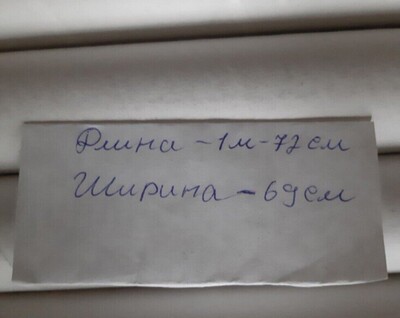 Длина - 1м - 72см
Ширина - 69см